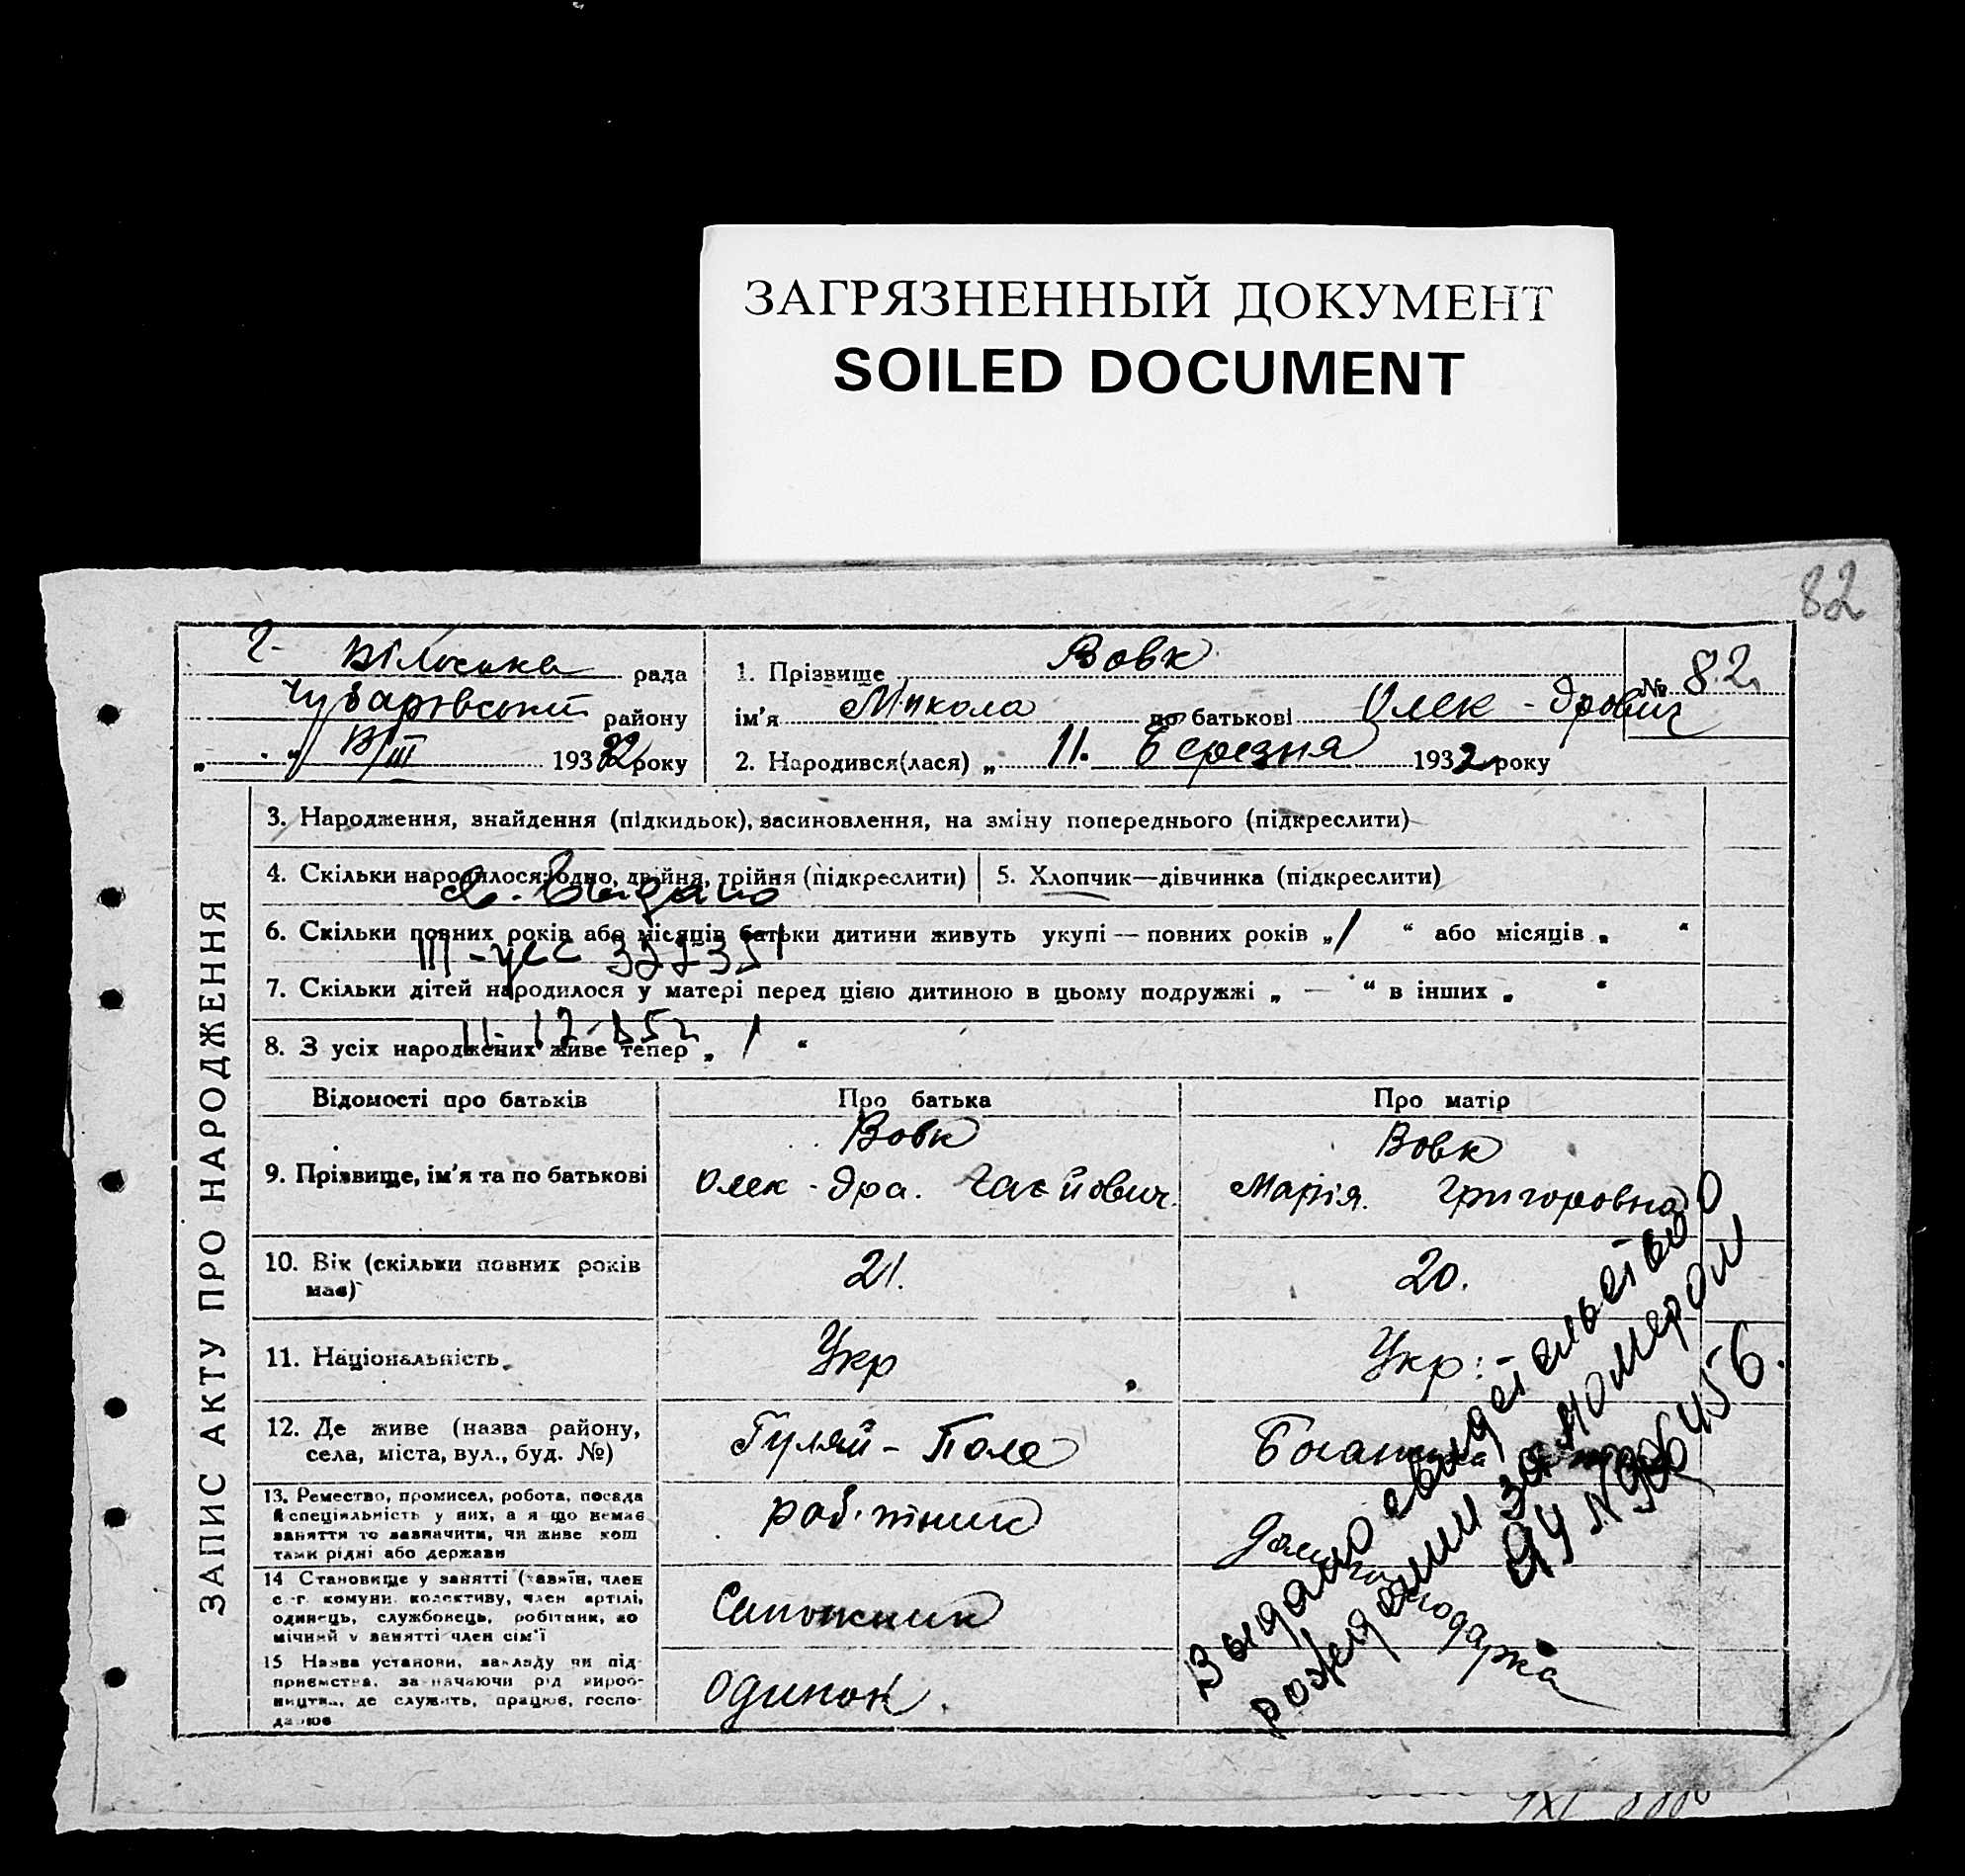 ЗАГРЯЗНЕННЫЙ ДОКУМЕНТ
SOILED DOCUMENT
82
рада
Чубарівський району
193 32 року
1. Прізвище Вовк
№ 82
ім'я Микола по батькові Олек-дрович
2. Народився(лася) „ 11. березня 1932 року
ЗАПИС АКТУ ПРО НАРОДЖЕННЯ
3. Народження, знайдення (підкидьок), засиновлення, на зміну попереднього (підкреслити)
4. Скільки народилося: одно, двійня, трійня (підкреслити)
5. Хлопчик—дівчинка (підкреслити)
6. Скільки повних років або місяців батьки дитини живуть укупі — повних років „ 1 “ або місяців „ “
7. Скільки дітей народилося у матері перед цією дитиною в цьому подружжі „ — “ в інших „ “
8. З усіх народжених живе тепер „ 1 “
Відомості про батьків
Про батька
Про матір
9. Прізвище, ім'я та по батькові
Вовк
Олек-дра.
Вовк
Марія. Григоровна
10. Вік (скільки повних років має)
21.
20.
11. Національність
Укр
Укр:-
12. Де живе (назва району,
села, міста, вул., буд. №)
Гуляй-Поле
13. Ремество, промисел, робота, посада
й спеціяльність у них, а якщо немає
заняття то зазначити, чи живе кош
тами рідні або держави
роб.тник
14 Становище у занятті (хазяїн, член
с.-г. комуни, колективу, член артілі,
одинець, службовець, робітник, по
мічний у занятті член сім'ї
Сапожник
15 Назва установи, закладу чи під-
приємства, зазначаючи рід вироб-
ництва, де служить, працює, госпо-
дарює
одинок.
Выдано свидетельство о
рождении за номером